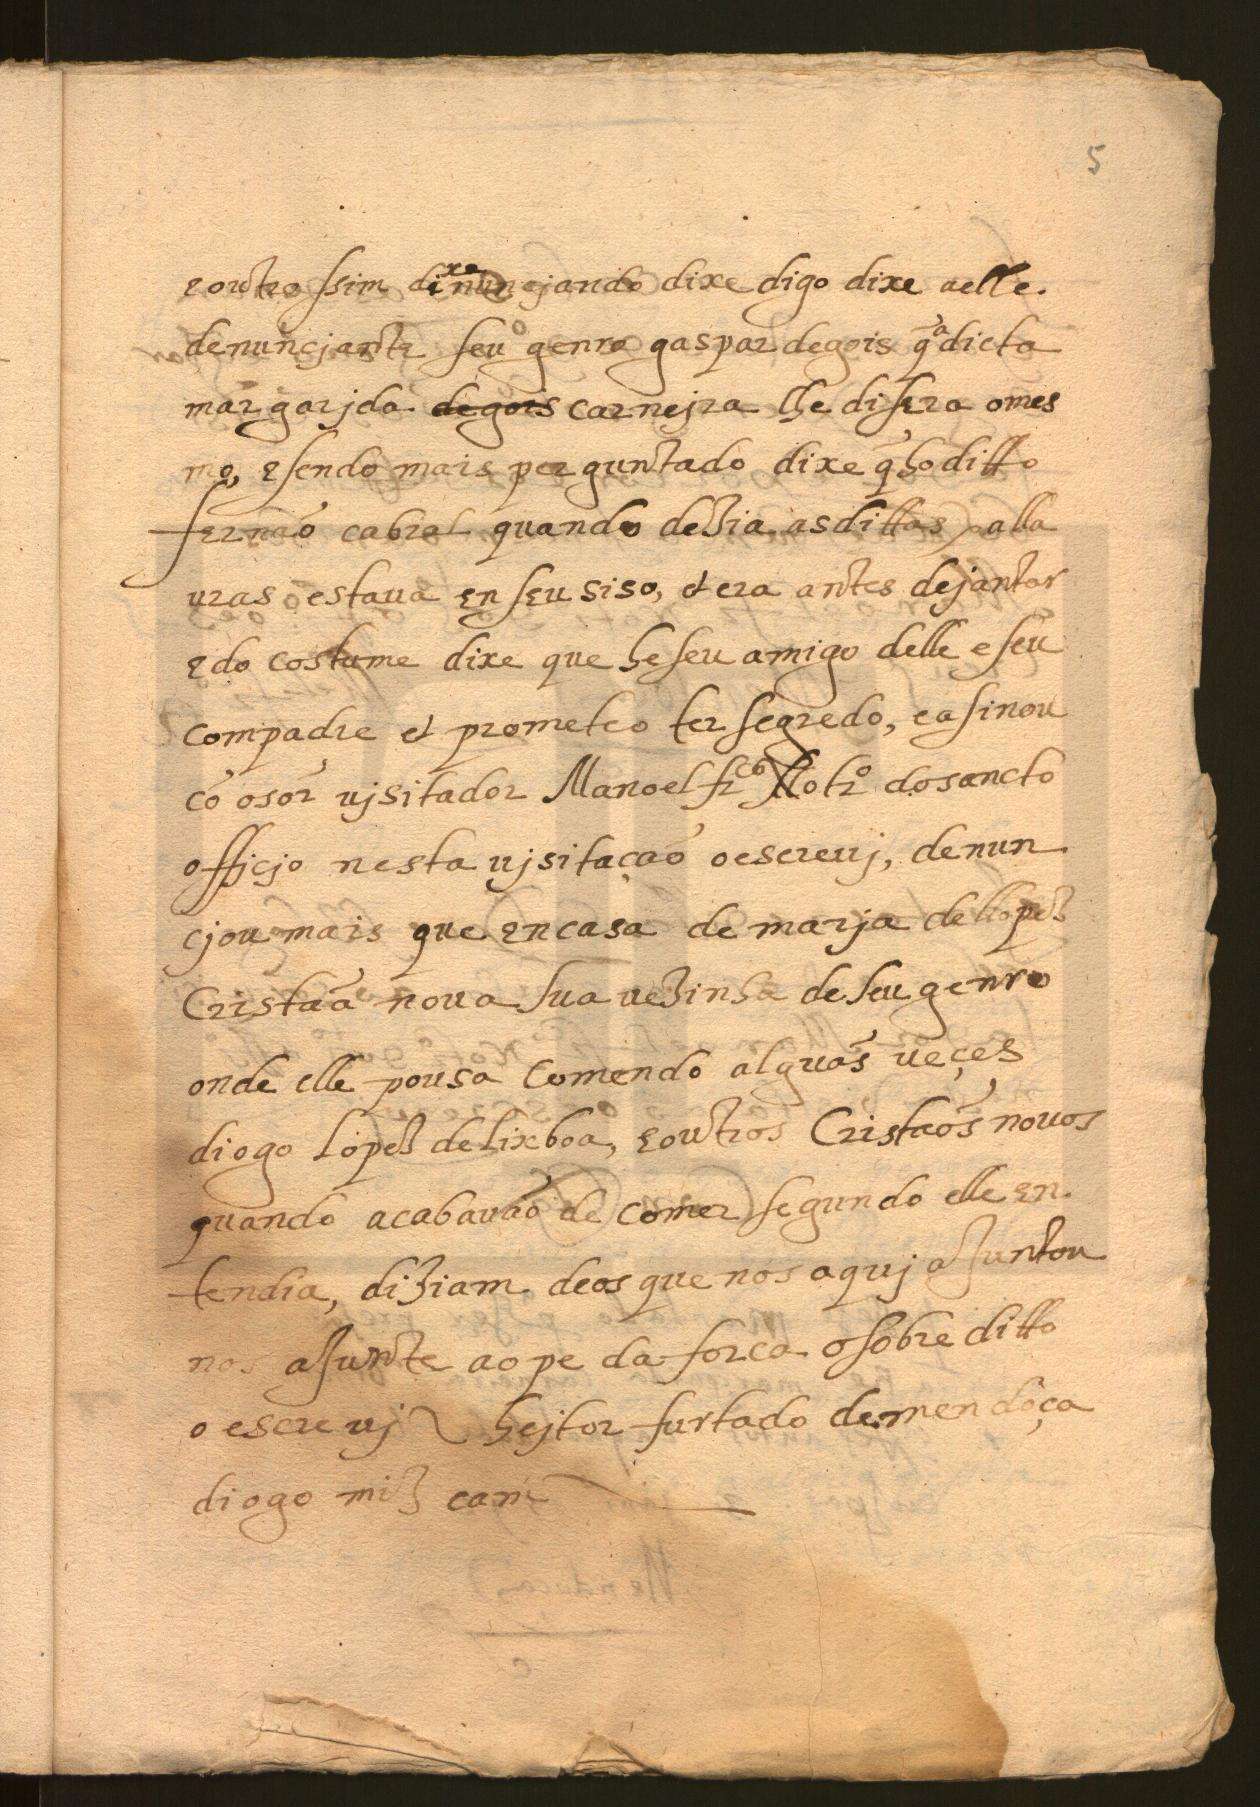 5
e outro ssim dixe nuncjando dixe digo dixe a elle
denuncjante seu genro gaspar de gois q̃ a dicta
margarjda de gois carnejra lhe disera o mes
mo, e sendo mais perguntado dixe q̃ ho ditto
fernaõ cabral quando dezia as dittas palla
uras estaua en seu siso, et era antes de jantar
e do costume dixe que he seu amigo delle e seu
compadre et prometeo ter segredo, e asinou
cõ o sõr vjsitador Manoel frco Notro do sancto
officjo nesta vjsitaçaõ o escrevj, denun
cjou mais que en casa de marja de llopez
Cristaã nova sua vezinha de seu genro
onde elle pousa comendo alguãs veçes
diogo lopez de lixboa, e outros Cristaõs novos
quando acabavaõ de comer segundo elle en
tendia, diziam deos que nos aquj ajuntou
nos ajunte ao pe da forca o sobre ditto
o escrevj hejtor furtado de mendoça
diogo miz cam